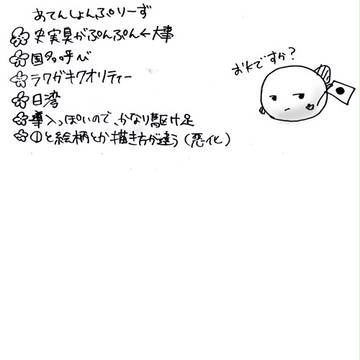 あてんしょんぷりーず
史実臭がぷんぷん←大事
国名呼び
ラクガキクオリティー
日湾
導入っぽいので、かなり駆け足
①と絵柄とか描き方が違う(悪化)
おkですか?